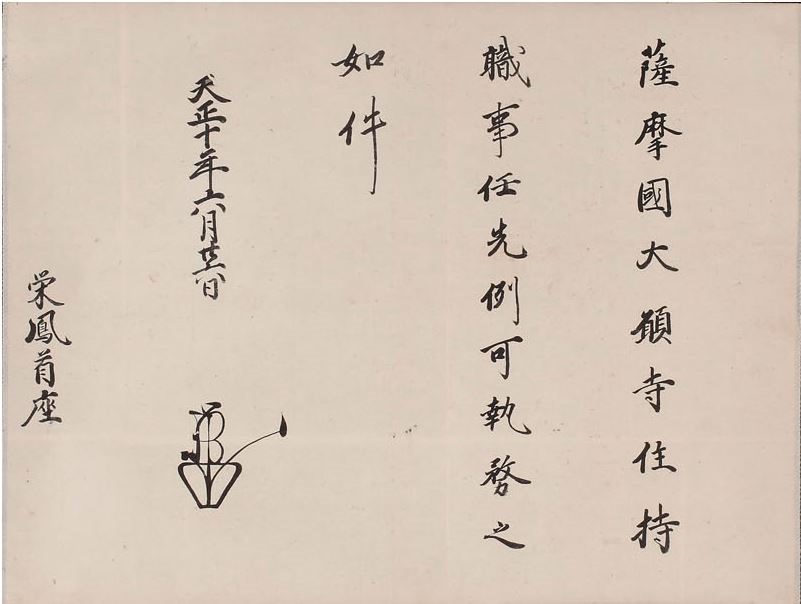 薩摩國大願寺住持
職事任先例可執務之
如件
天正十年六月廿六日
栄鳳首座